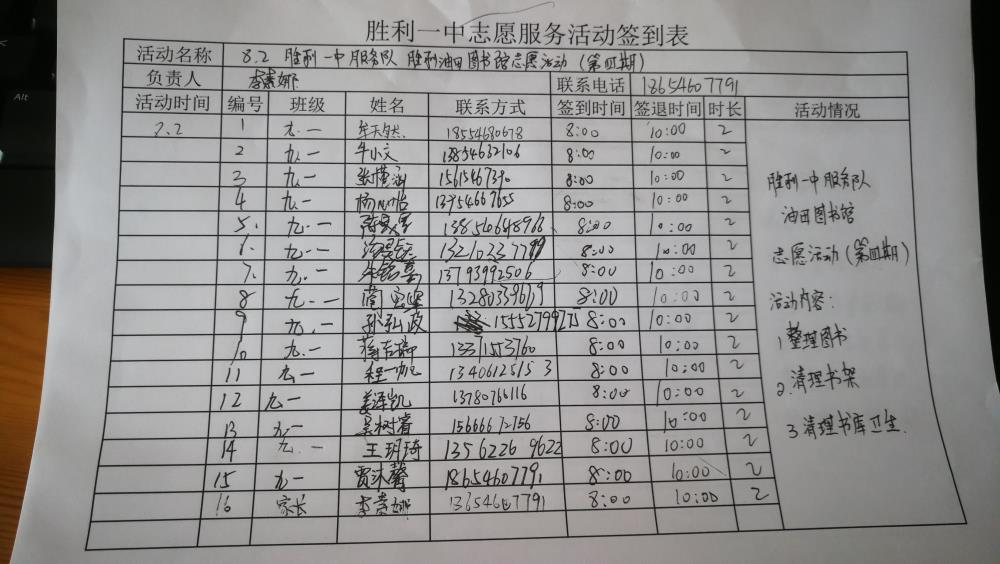 胜利一中志愿服务活动签到表
活动名称 8.2 胜利一中服务队 胜利油田图书馆志愿活动(第四期)
负责人 李素娜 联系电话 18654607791
活动时间 编号 班级 姓名 联系方式 签到时间 签退时间 时长 活动情况
8.2 1 九.一 牟天然 18554680678 8:00 10:00 2
2 九一 牛小文 13854632106 8:00 10:00 2
3 九一 8:00 10:00 2
4 九.一 杨心怡 13954667655 8:00 10:00 2
5. 九.一 8:00 10:00 2
6. 九.一 8:00 10:00 2
7. 九.一 13793992506 8:00 10:00 2
8 九.一 8:00 10:00 2
9 九.一 孙弘政 15552799275 8:00 10:00 2
10 九.一 8:00 10:00 2
11 九一 13406125153 8:00 10:00 2
12 九一 姜泽凯 13780766116 8:00 10:00 2
13 九一 吴树睿 15666672756 8:00 10:00 2
14 九.一 王玥琦 13562269622 8:00 10:00 2
15 九一 贾沐馨 18654607791 8:00 10:00 2
16 家长 李素娜 13654607791 8:00 10:00 2
胜利一中服务队
油田图书馆
志愿活动(第四期)
活动内容:
1 整理图书
2.清理书架
3 清理书库卫生.